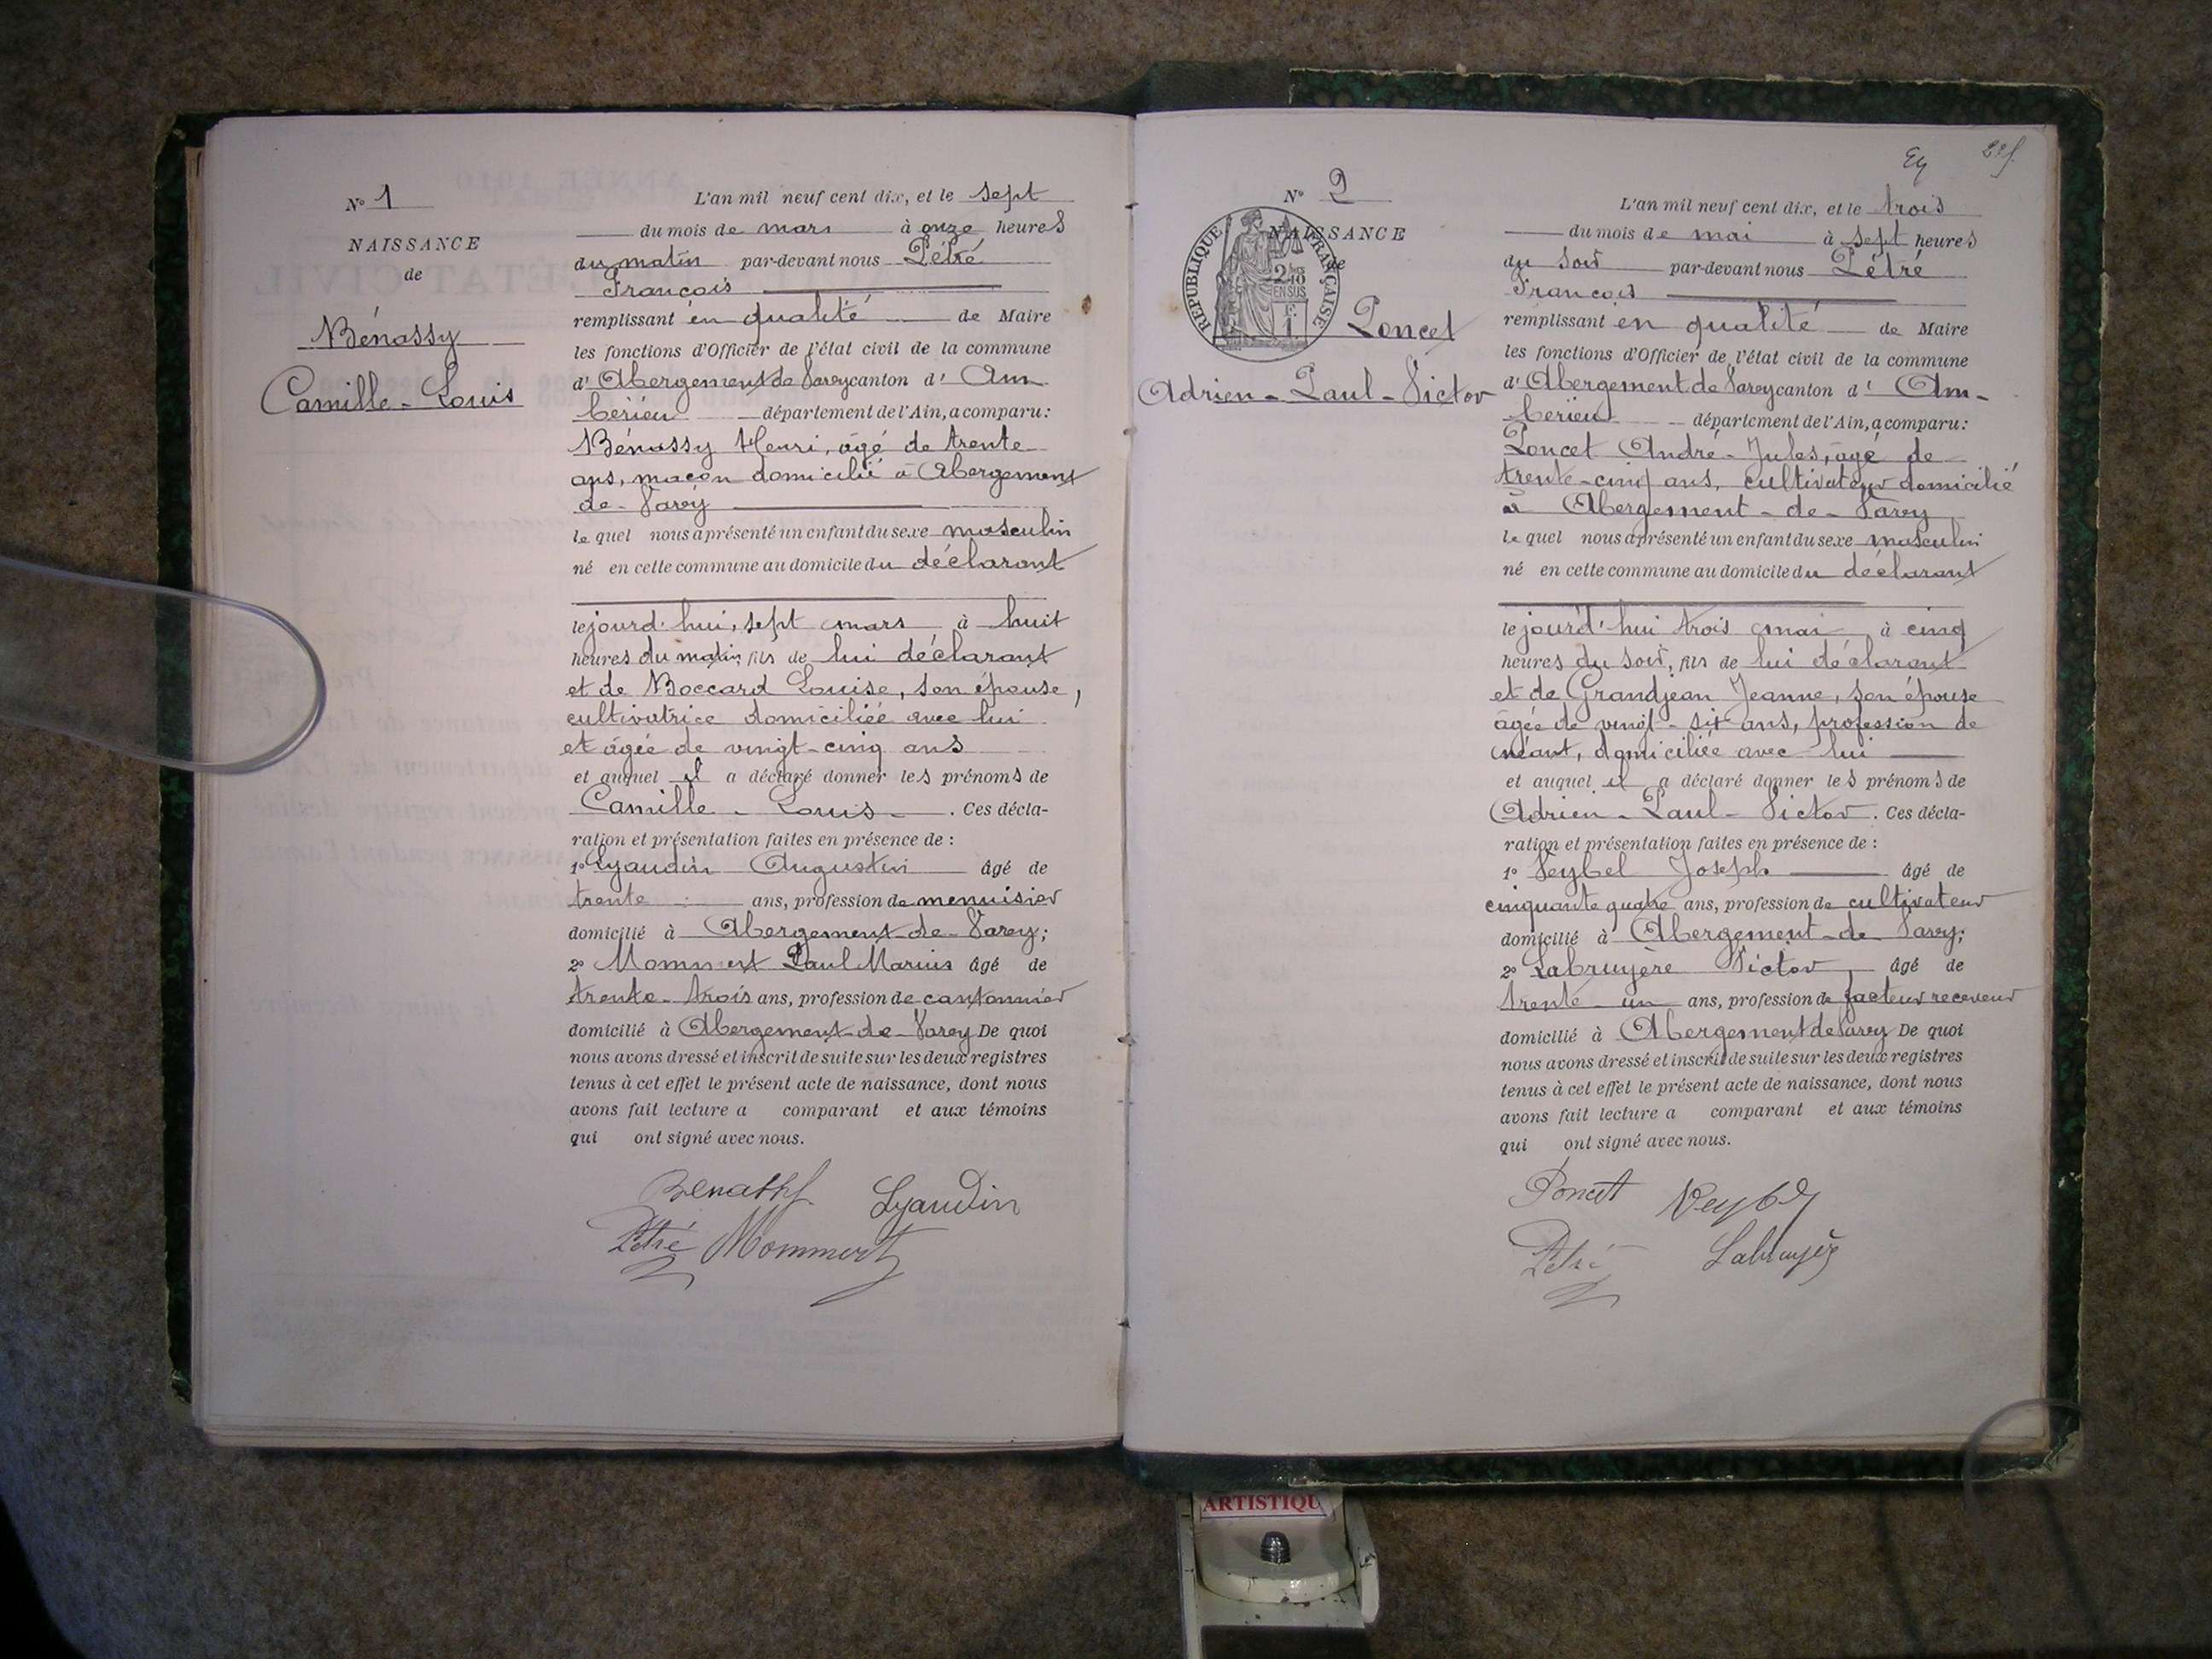 N° 1
NAISSANCE
de
Bénassy
Camille - Louis
L'an mil neuf cent dix, et le sept
du mois de mars à onze heures
du matin par-devant nous Pétré
François
remplissant en qualité de Maire
les fonctions d'Officier de l'état civil de la commune
d' Abergement de Varey canton d' Am
bérieu département de l'Ain, a comparu :
Bénassy Henri, âgé de trente
ans, maçon domicilié à Abergement
de - Varey
le quel nous a présenté un enfant du sexe masculin
né en cette commune au domicile du déclarant
le jourd'hui, sept mars à huit
heures du matin, fils de lui déclarant
et de Boccard Louise, son épouse,
cultivatrice domiciliée avec lui
et âgée de vingt-cinq ans
et auquel il a déclaré donner les prénoms de
Camille - Louis - . Ces décla-
ration et présentation faites en présence de :
1° Lyaudin Augustin âgé de
trente ans, profession de menuisier
domicilié à Abergement-de-Varey;
2° Mommert Paul Marius âgé de
trente-trois ans, profession de cantonnier
domicilié à Abergement-de-Varey De quoi
nous avons dressé et inscrit de suite sur les deux registres
tenus à cet effet le présent acte de naissance, dont nous
avons fait lecture a comparant et aux témoins
qui ont signé avec nous.
Benassy Lyaudin
Pétré Mommert
2
N° 2
NAISSANCE
de
RÉPUBLIQUE FRANÇAISE
EN SUS
Poncet
Adrien - Paul - Victor
L'an mil neuf cent dix, et le trois
du mois de mai à sept heures
du soir par-devant nous Pétré
François
remplissant en qualité de Maire
les fonctions d'Officier de l'état civil de la commune
d' Abergement de Varey canton d' Am-
bérieu département de l'Ain, a comparu :
Poncet André - Jules, âgé de
trente-cinq ans, cultivateur domicilié
à Abergement - de - Varey
le quel nous a présenté un enfant du sexe masculin
né en cette commune au domicile du déclarant
le jourd'hui trois mai à cinq
heures du soir, fils de lui déclarant
et de Grandjean Jeanne, son épouse
âgée de vingt-six ans, profession de
néant, domiciliée avec lui
et auquel il a déclaré donner les prénoms de
Adrien - Paul - Victor . Ces décla-
ration et présentation faites en présence de :
1° Veybel Joseph âgé de
cinquante quatre ans, profession de cultivateur
domicilié à Abergement-de Varey;
2° Labruyère Victor âgé de
trente - un ans, profession de facteur receveur
domicilié à Abergement de Varey De quoi
nous avons dressé et inscrit de suite sur les deux registres
tenus à cet effet le présent acte de naissance, dont nous
avons fait lecture a comparant et aux témoins
qui ont signé avec nous.
Poncet Veybel
Pétré Labruyère
ARTISTIQU